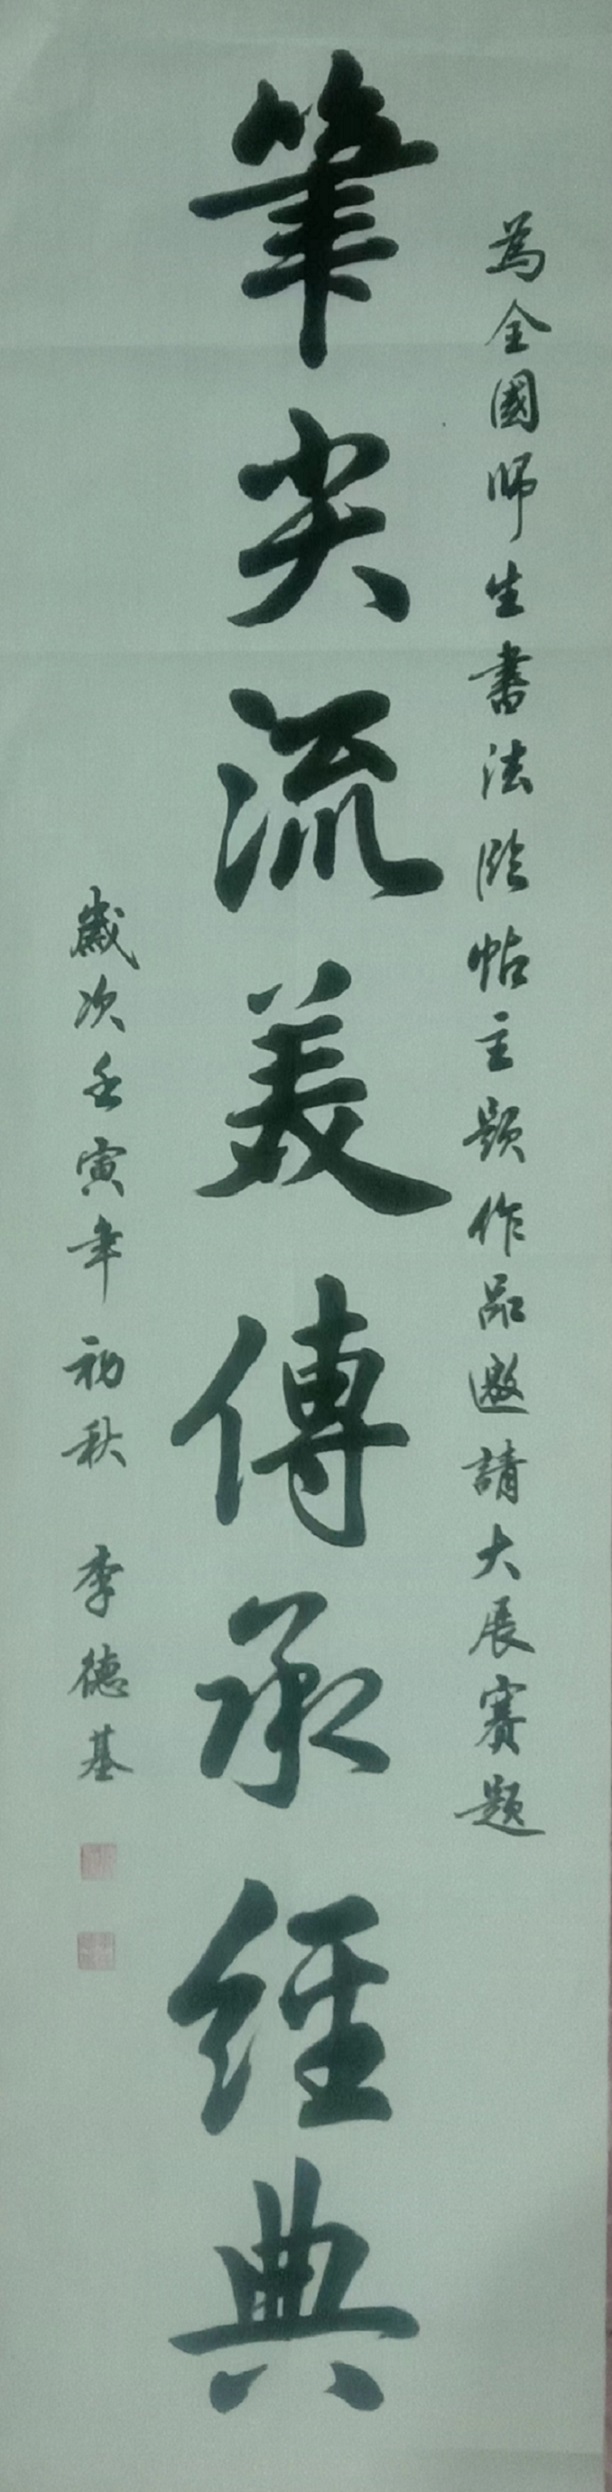 為全國師生書法臨帖主題作品邀請大展賽題
筆尖流美傳承經典
歲次壬寅年初秋 李德基